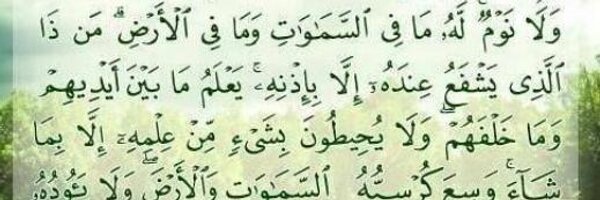 وَلَا نَوْمٌ ۚ لَّهُۥ مَا فِى ٱلسَّمَـٰوَٰتِ وَمَا فِى ٱلْأَرْضِ ۗ مَن ذَا
ٱلَّذِى يَشْفَعُ عِندَهُۥٓ إِلَّا بِإِذْنِهِۦ ۚ يَعْلَمُ مَا بَيْنَ أَيْدِيهِمْ
وَمَا خَلْفَهُمْ ۖ وَلَا يُحِيطُونَ بِشَىْءٍ مِّنْ عِلْمِهِۦٓ إِلَّا بِمَا
شَآءَ ۚ وَسِعَ كُرْسِيُّهُ ٱلسَّمَـٰوَٰتِ وَٱلْأَرْضَ ۖ وَلَا يَـُٔودُهُۥ